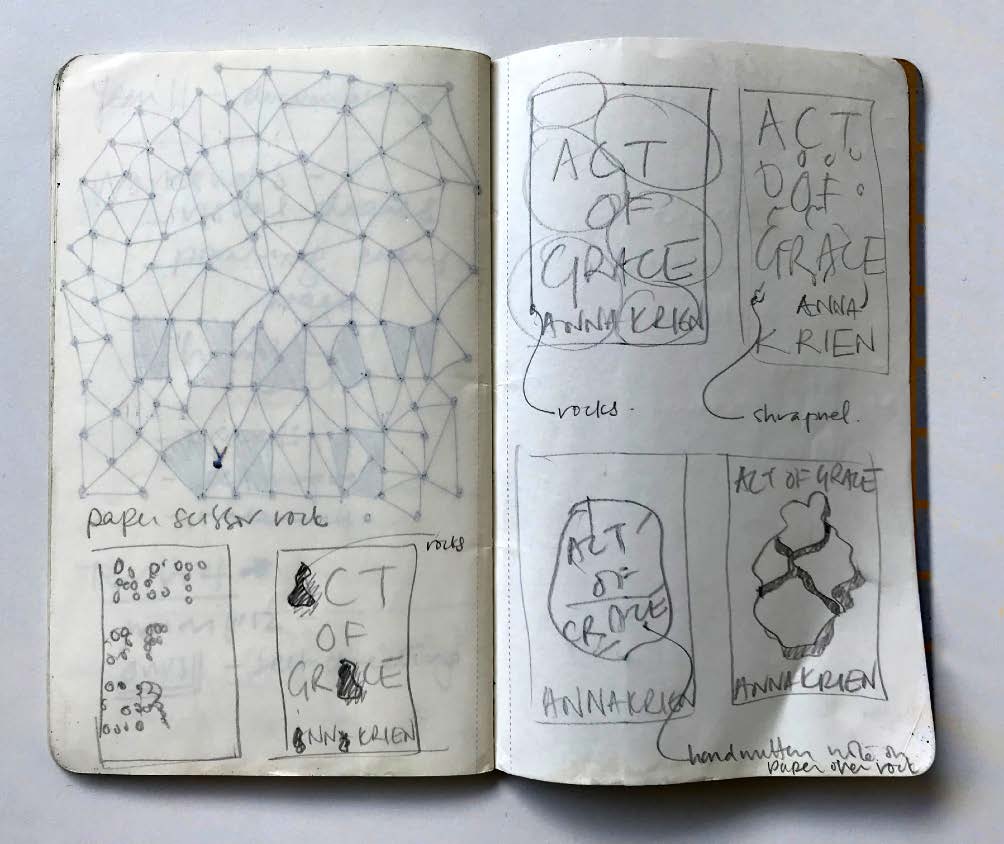 paper scissor rock
rocks
ACT
OF
GRACE
ANNA KRIEN
ACT
OF
GRACE
ANNA KRIEN
rocks.
ACT
OF
GRACE
ANNA
KRIEN
shrapnel.
ACT
OF
GRACE
ANNA KRIEN
handwritten note on
paper over rock
ACT OF GRACE
ANNA KRIEN